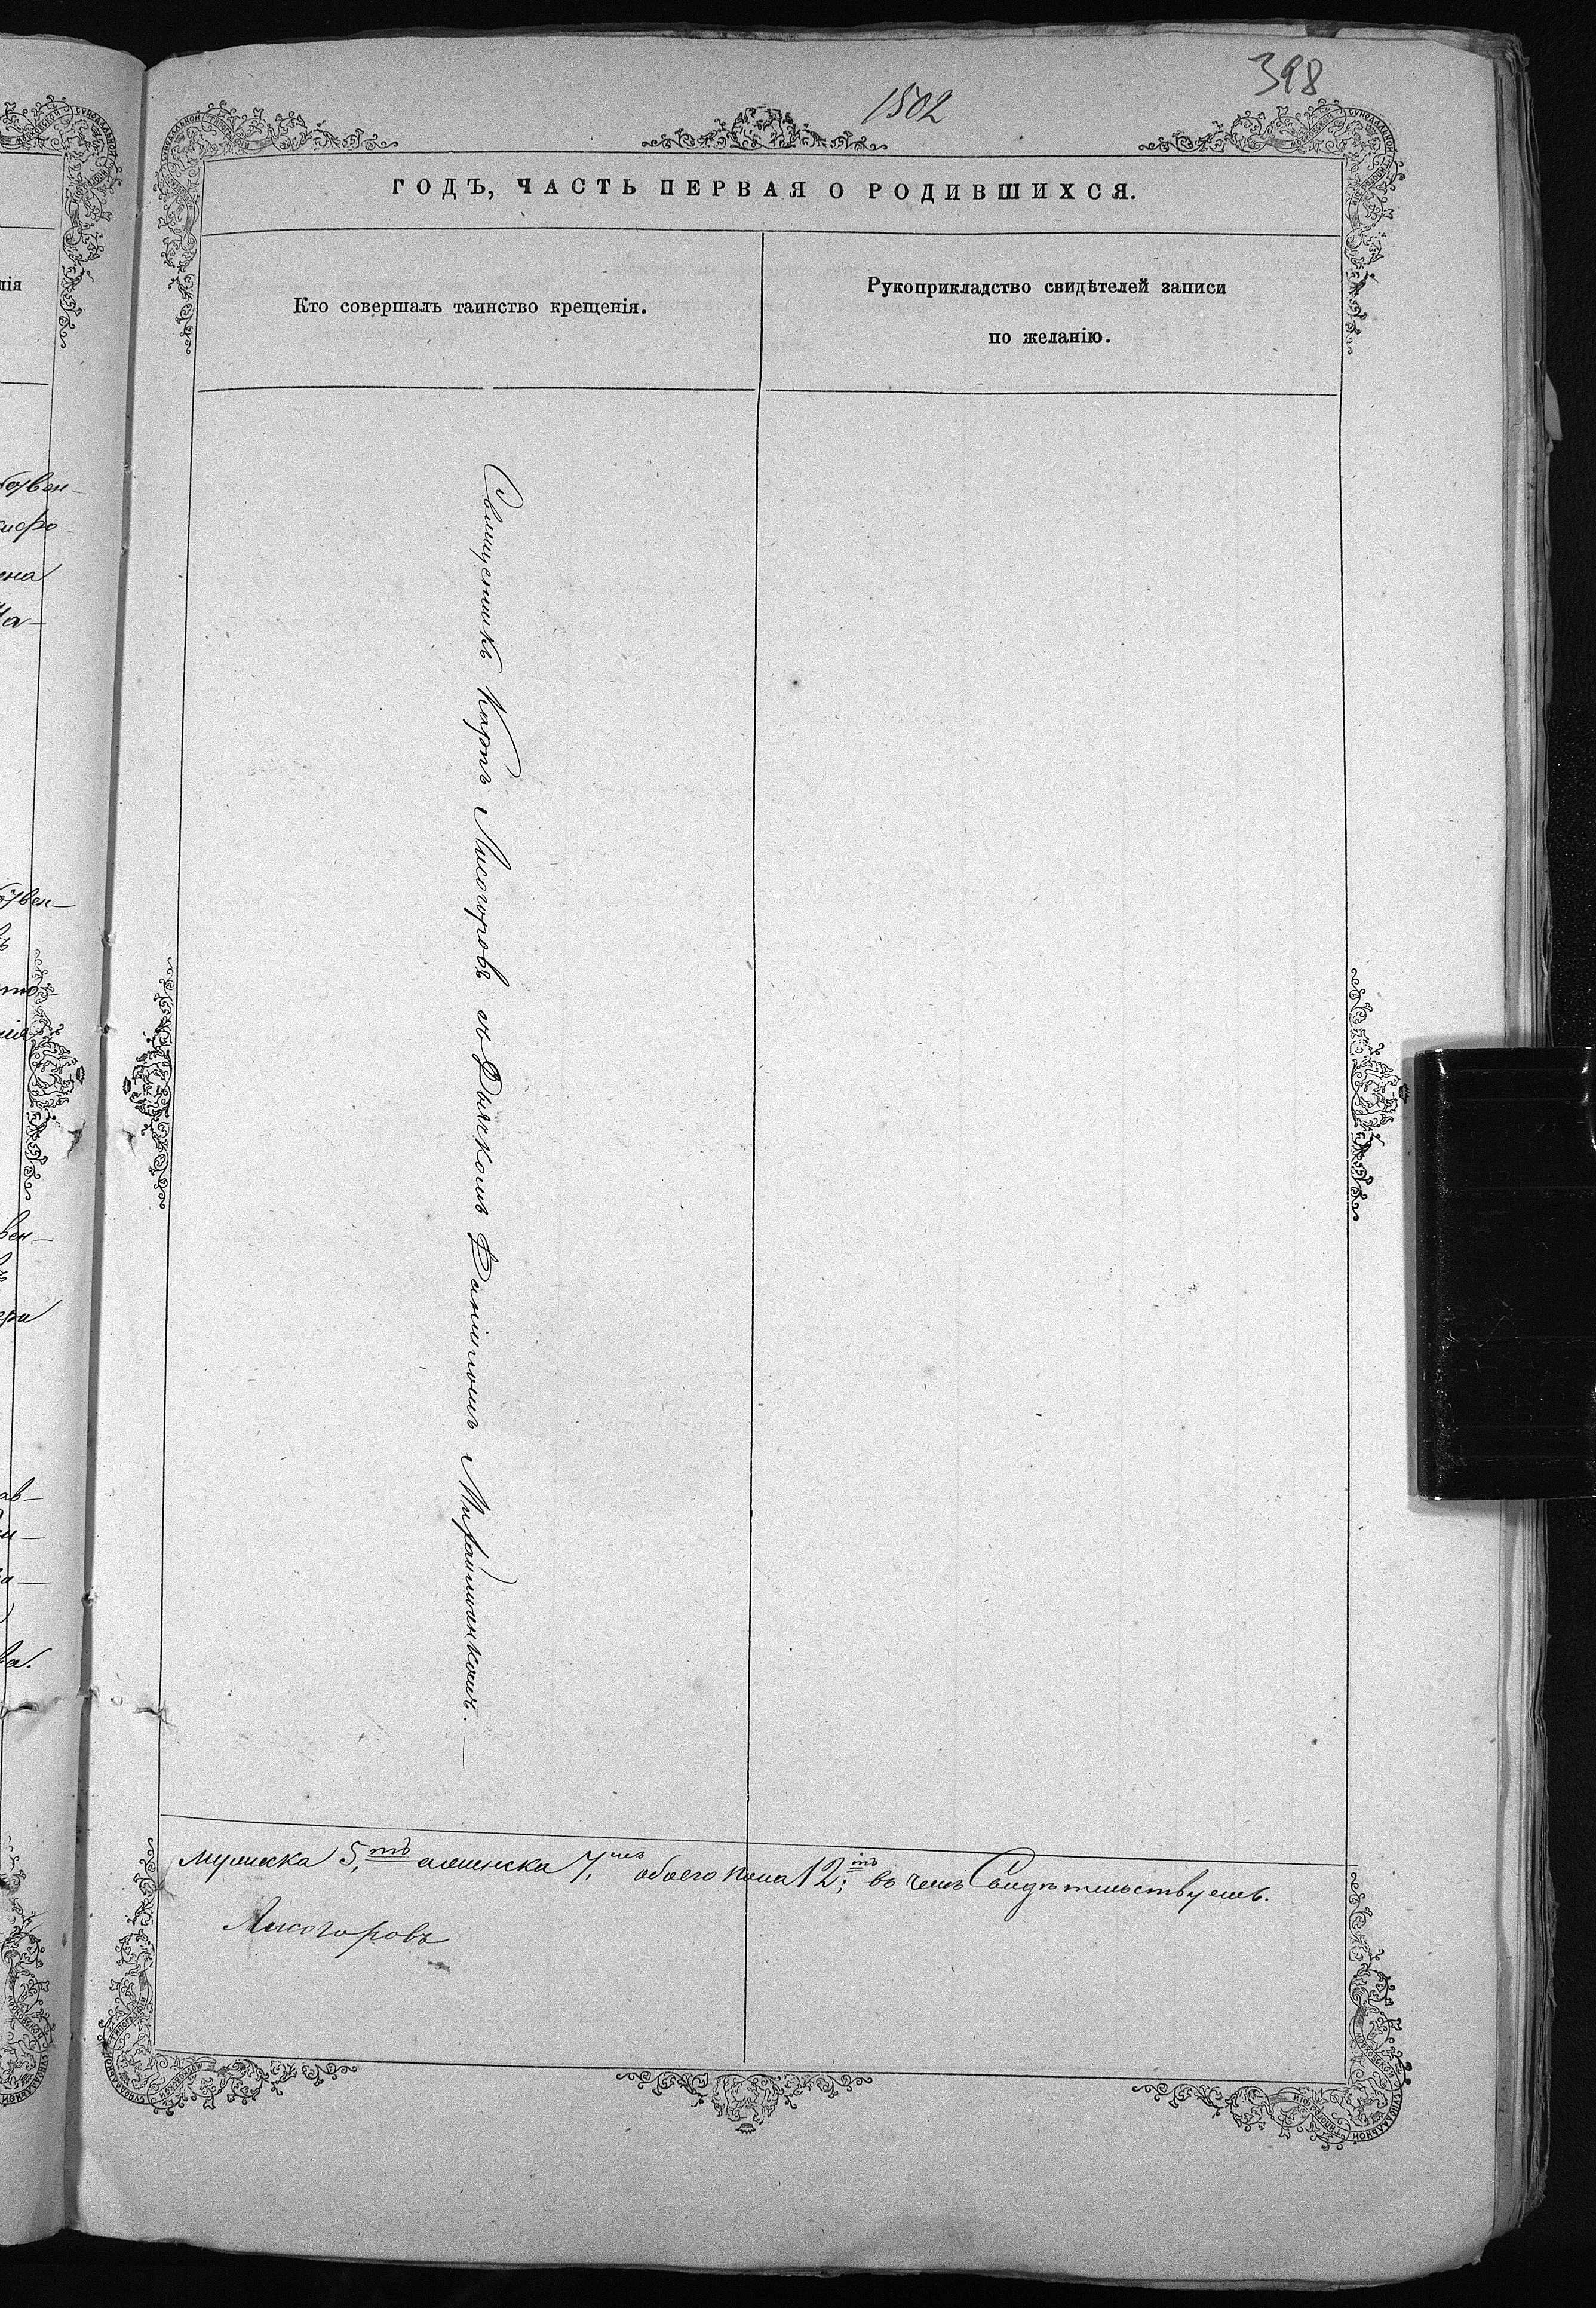 398
1502
ГОДЪ, ЧАСТЬ ПЕРВАЯ О РОДИВШИХСЯ.
Кто совершалъ таинство крещенія.
Рукоприкладство свидѣтелей записи
по желанію.
Священникъ Карпъ Лисогоровъ съ Дьячкомъ Даніиломъ Михайленкомъ.
мужеска 5,ть женска 7,мь обоего пола 12;ть въ чемъ Свидѣтельствуемъ.
Лисогоровъ